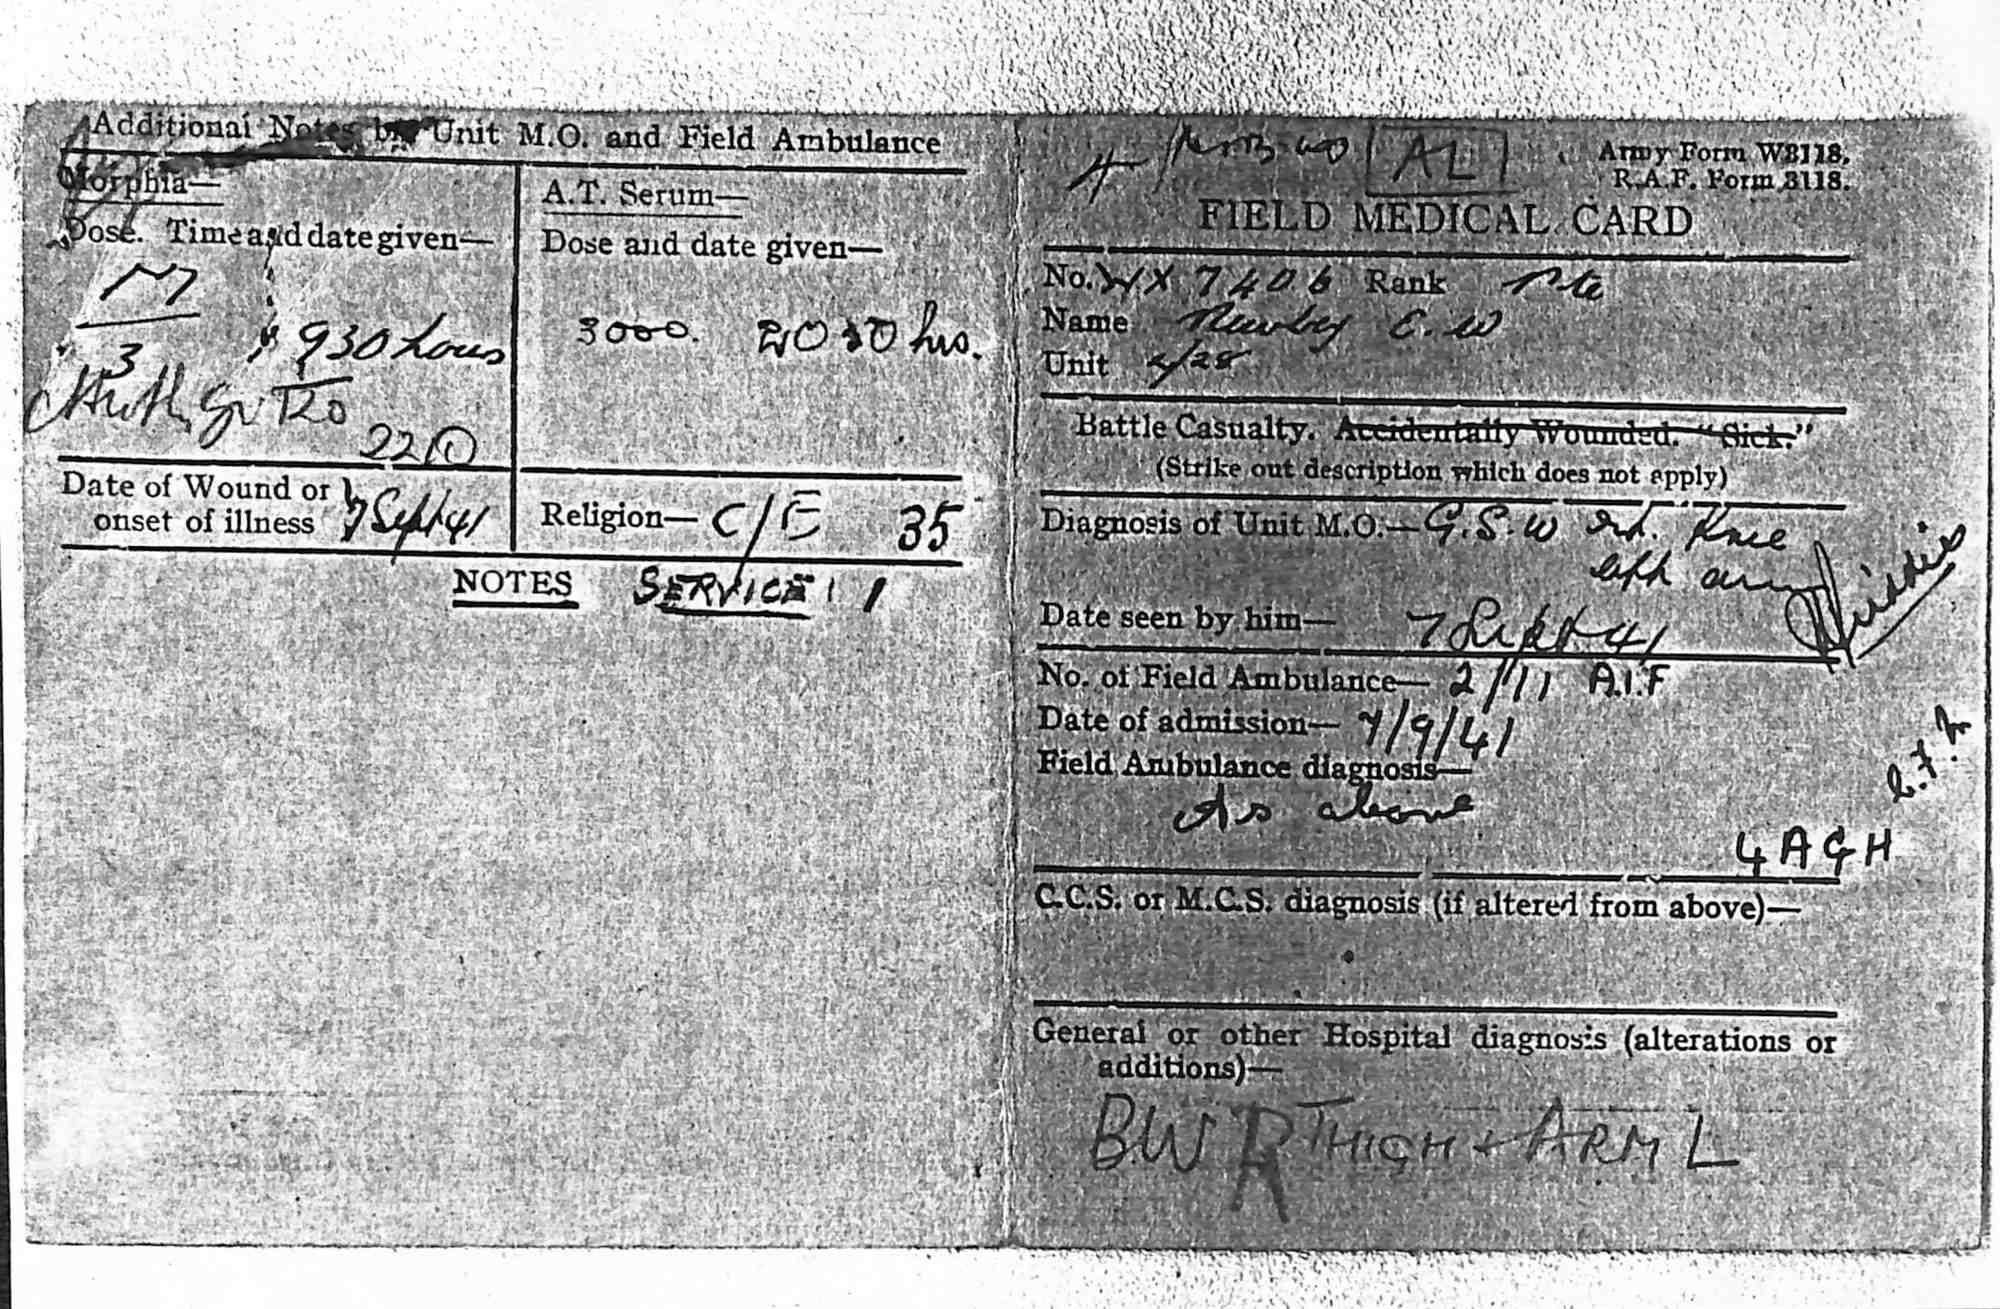 Additional Notes by Unit M.O. and Field Ambulance
Morphia—
Dose. Time and date given—
M
3
930 hours
gr
220
A.T. Serum—
Dose and date given—
3000. 2030 hrs.
Date of Wound or
onset of illness 7 Sept 41
Religion— C/E 35
NOTES SERVICE 1
4 AL
Army Form W3118.
R.A.F. Form 3118.
FIELD MEDICAL CARD
No. WX 7406 Rank Pte
Name Newbey E. W
Unit 2/28
Battle Casualty. Accidentally Wounded. "Sick."
(Strike out description which does not apply)
Diagnosis of Unit M.O.— G.S.W Knee
left arm
Date seen by him— 7 Sept 41
No. of Field Ambulance— 2/11 A.I.F
Date of admission— 7/9/41
Field Ambulance diagnosis—
As above
4 AGH
C.C.S. or M.C.S. diagnosis (if altered from above)—
General or other Hospital diagnosis (alterations or
additions)—
BW R THIGH + ARM L